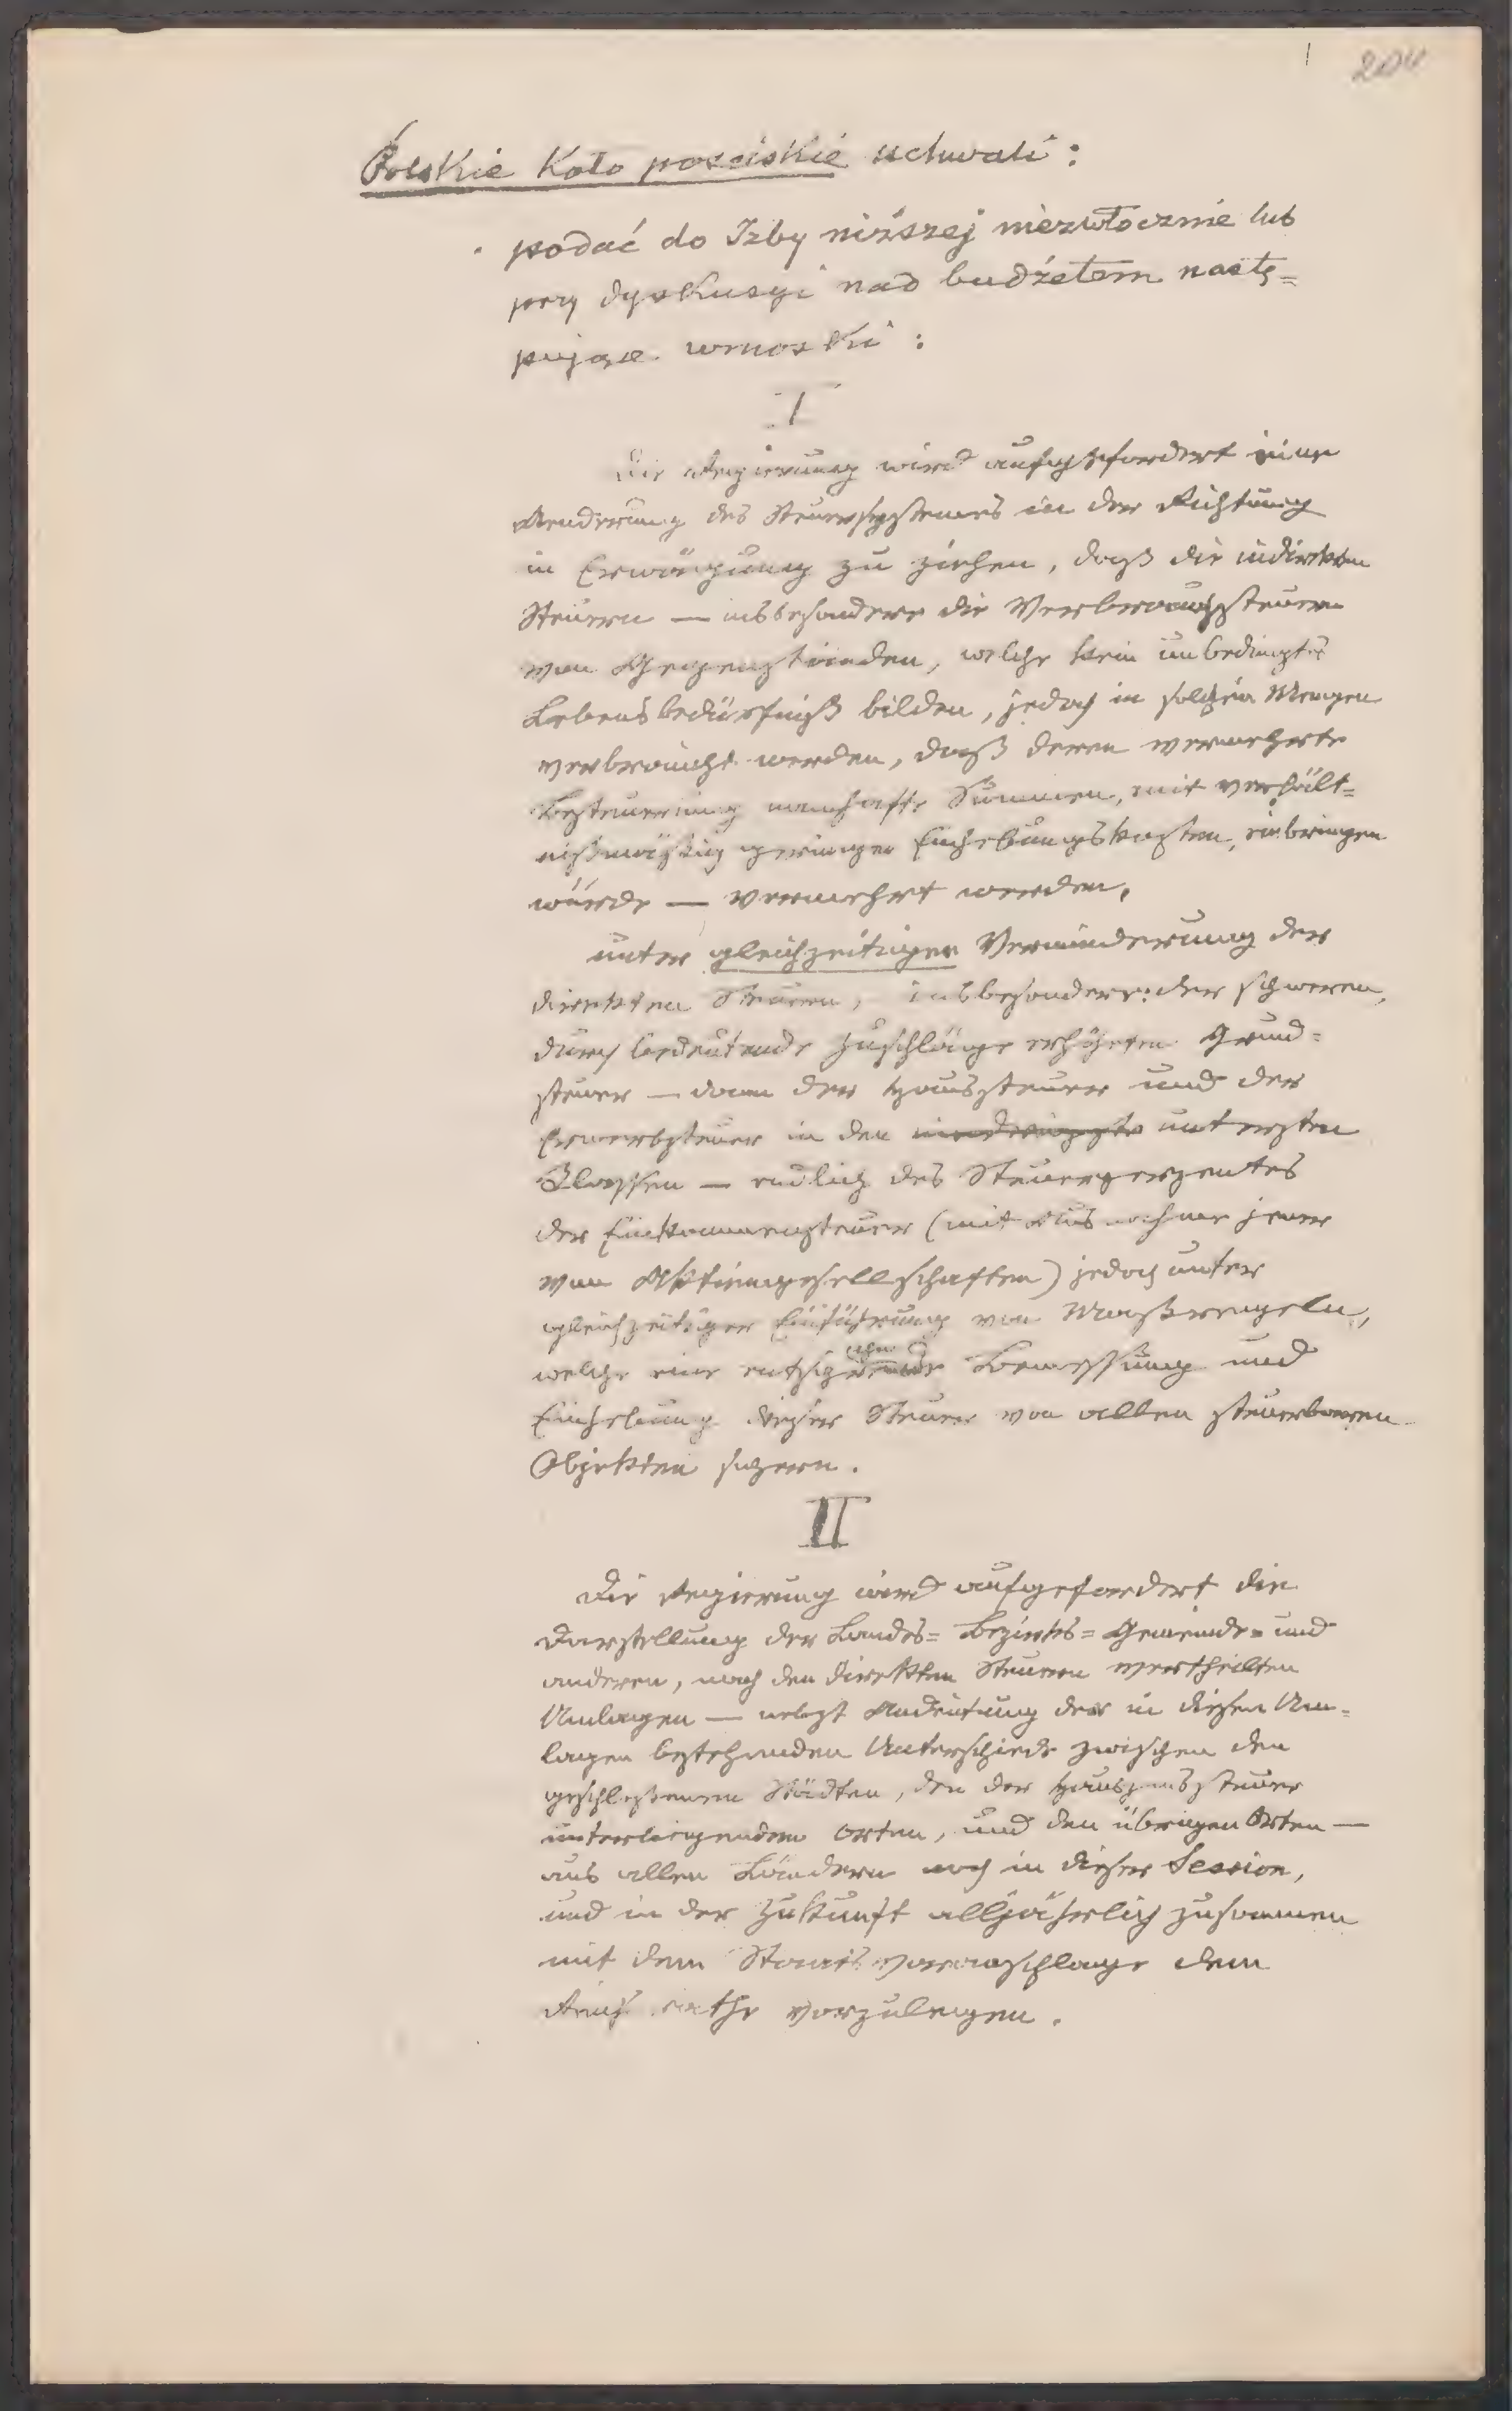 204
Polskie Koło poselskie uchwali:
podać do Izby niższej niezwłocznie lub
przy dyskusyi nad budżetem nastę=
pujące wnioski:
I
Die Regierung wird aufgefordert eine
Aenderung des Steuersystemes in der Richtung
in Erwägung zu ziehen, daß die indirekten
Steuern — insbesondere die Verbrauchssteuern
von Gegenständen, welche kein unbedingtes
Lebensbedürfniß bilden, jedoch in solchen Mengen
verbraucht werden, daß deren vermehrte
Besteuerung namhafte Summen, mit verhält=
nißmäßig geringen Einhebungskosten, einbringen
würde — vermehrt werden,
unter gleichzeitiger Verminderung der
direkten Steuern, insbesondere: der schweren,
durch bedeutende Zuschläge erhöhten Grund=
steuer — dann der Haussteuer und der
Erwerbsteuer in den untersten
Classen — endlich des Steuerperzentes
der Einkommensteuer (mit Ausnahme jener
von Aktiengesellschaften) jedoch unter
gleichzeitiger Einführung von Maßregeln,
welche eine Bemessung und
Einhebung dieser Steuer von allen steuerbaren
Objekten sichern.
II
Die Regierung wird aufgefordert die
Darstellung der Landes= Bezirks= Gemeinde= und
anderen, nach den direkten Steuern vertheilten
Umlagen — nebst Andeutung der in diesen Um=
lagen bestehenden Unterschiede zwischen den
geschlossenen Städten, den der Hauszinssteuer
unterliegenden Orten, und den übrigen Orten —
aus allen Ländern noch in dieser Session,
und in der Zukunft alljährlich zusammen
mit dem Staatsvoranschlage dem
Reichsrathe vorzulegen.